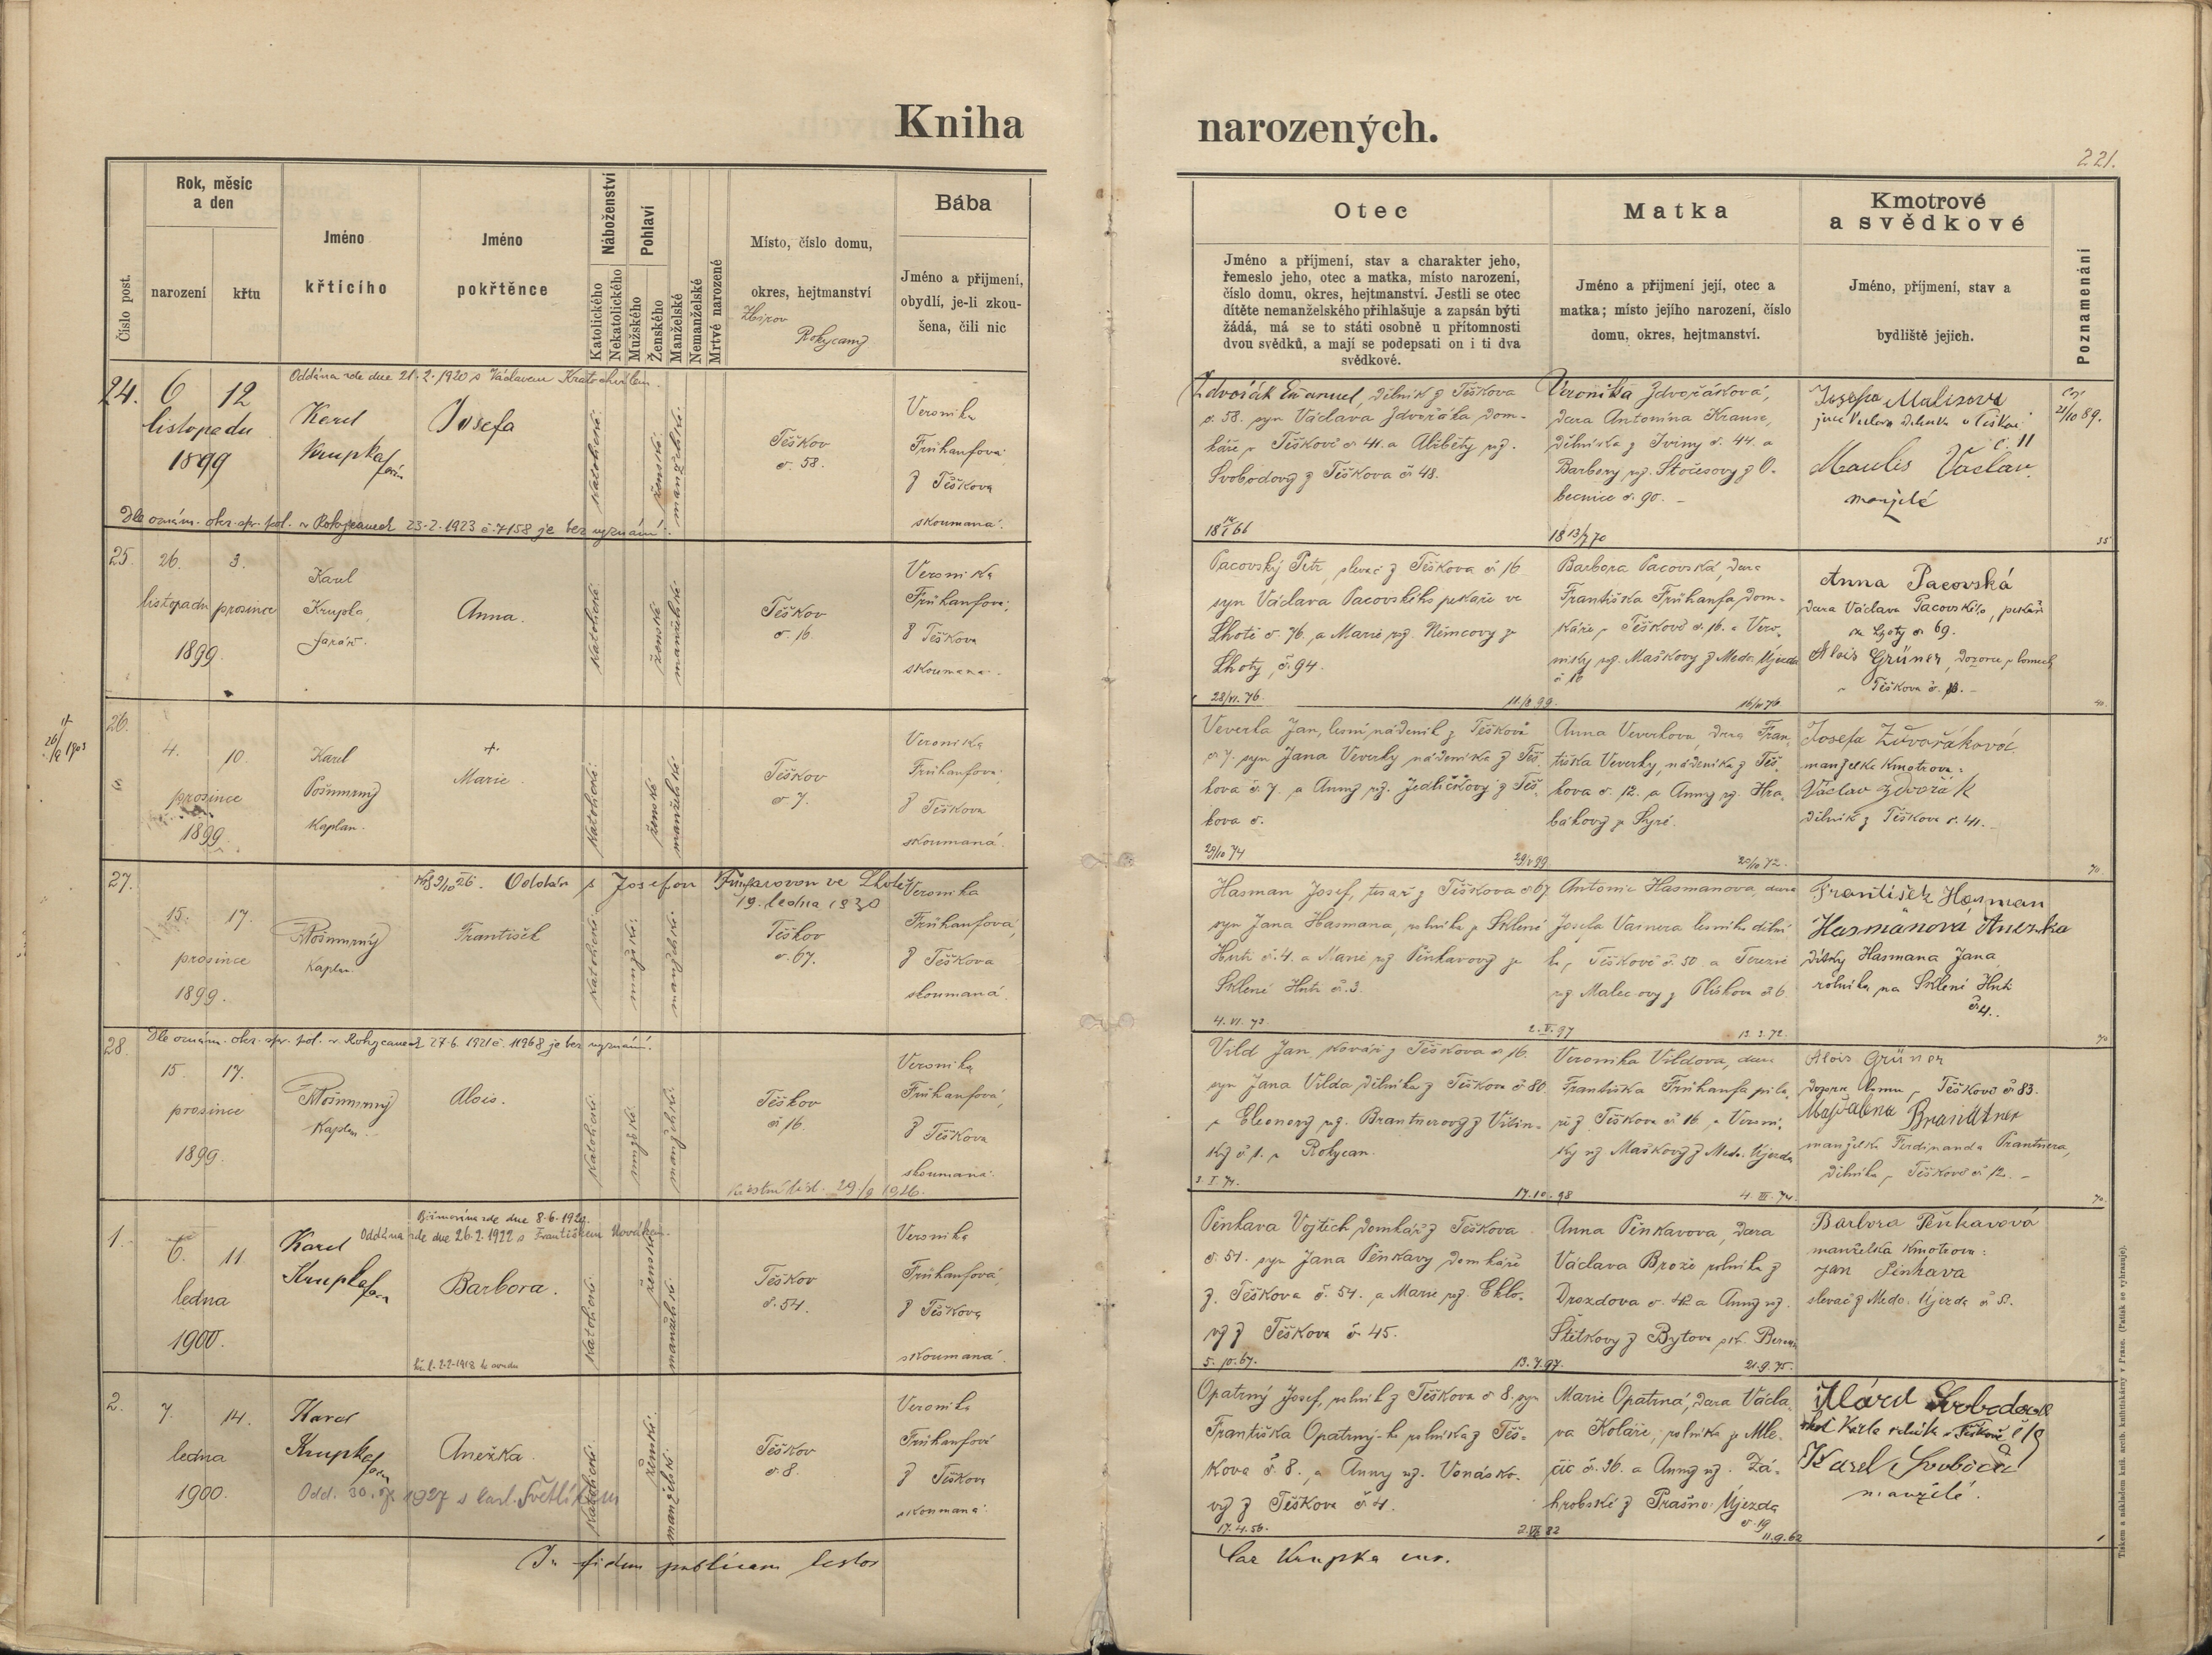 Kniha narozených.
221.
Číslo post.
Rok, měsíc
a den
narození
křtu
Jméno
křticího
Jméno
pokřtěnce
Náboženství
Katolického
Nekatolického
Pohlaví
Mužského
Ženského
Manželské
Nemanželské
Mrtvě narozené
Místo, číslo domu,
okres, hejtmanství
Zbirov
Rokycany
Bába
Jméno a přijmení,
obydlí, je-li zkou-
šena, čili nic
Otec
Jméno a příjmení, stav a charakter jeho,
řemeslo jeho, otec a matka, místo narození,
číslo domu, okres, hejtmanství. Jestli se otec
dítěte nemanželského přihlašuje a zapsán býti
žádá, má se to státi osobně u přítomnosti
dvou svědků, a mají se podepsati on i ti dva
svědkové.
Matka
Jméno a přijmení její, otec a
matka; místo jejího narození, číslo
domu, okres, hejtmanství.
Kmotrové
a svědkové
Jméno, příjmení, stav a
bydliště jejich.
Poznamenání
24.
6 12
listopadu
1899
Oddána zde dne 21.2.1920 s Václavem Kratochvílem.
Karel
Krupka
Josefa
katolické
ženské
manželské
Těškov
č. 58.
Veronika
Frühaufova
z Těškova
zkoumaná.
Dle oznám. okr. spr. pol. v Rokycanech 23.2.1923 č. 7158 je bez vyznání.
Zdvořák Emanuel, dělník z Těškova
č. 58. syn Václava Zdvořáka dom-
káře v Těškově č. 41. a Alžběty roz.
Svobodovy z Těškova č. 48.
Veronika Zdvořáková,
dcera Antonína Krause,
dělníka z Iviny č. 44. a
Barbory roz. Štočesovy z O-
becnice č. 90. -
18 13/7 70
č. 11
Maulis Václav
manželé
25.
26. 3.
listopadu prosince
1899.
Karel
Krupka,
farář.
Anna.
katolické
ženské
manželské
Těškov
č. 16.
Veronika
Frühaufova,
z Těškova
zkoumana.
Pacovský Petr, slevač z Těškova č. 16
syn Václava Pacovského pekaře ve
Lhotě č. 76. a Marie roz. Němcovy ze
Lhoty, č. 94.
28/VI. 76.
Barbora Pacovská, dcera
Františka Frühaufa, dom-
káře v Těškově č. 16. a Vero-
niky roz. Maškovy z Medo. Újezda
č. 10
Anna Pacovská
dcera Václava Pacovského, pekaře
ze Lhoty č. 69.
Alois Grüner, dozorce v lomech
26.
4. 10.
prosince
1899.
Karel
Pošumrný
Kaplan.
+
Marie.
katolické
ženské
manželské
Těškov
č. 7.
Veronika
Frühaufova
z Těškova
zkoumaná.
Veverka Jan, lesní nádeník z Těškova
č. 7. syn Jana Veverky nádeníka z Těš-
kova č. 7. a Anny roz. Jedličkovy z Těš-
kova č.
29/10 74
Anna Veverkova, dcera Fran-
tiška Veverky, nádeníka z Těš-
kova č. 12. a Anny roz. Hra-
bákovy ze Syré.
Josefa Zdvořáková
manželka kmotrova:
Václav Zdvořák
dělník z Těškova č. 41.
27.
15. 17.
prosince
1899.
Oddán s Josefou Frühaufovou ve Lhotě
19. ledna 1930
Pošumrný
Kaplan.
František
katolické
mužské
manželské
Těškov
č. 67.
Veronika
Frühaufová,
z Těškova
zkoumaná.
Hasman Josef, tesař z Těškova č. 67
syn Jana Hasmana, rolníka v Sklené
Huti č. 4. a Marie roz Pěnkavovy ze
Sklené Huti č. 3.
4. VI. 73.
2. V. 97
Antonie Hasmanova, dcera
Josefa Vasnera lesního dělní-
ka v Těškově č. 50. a Terezie
roz Malec ovy z Plískova č. 6
13. 3. 72.
František Hasman
Hasmanová Anežka
dítky Hasmana Jana
rolníka na Sklené Huti
č. 4.
28.
Dle oznám. okr. spr. pol. v Rokycanech 27.6.1921 č. 11968 je bez vyznání.
15. 17.
prosince
1899.
Pošumrný
Kaplan.
Alois.
katolické
mužské
manželské
Těškov
č. 16
Veronika
Frühaufová,
z Těškova
zkoumaná.
křestní list. 29./9 1926.
Vild Jan, kovář z Těškova č. 16.
syn Jana Vilda dělníka z Těškova č. 80.
a Eleonory roz. Brantnerovy z Vitin-
ky č. 1. v Rokycan.
17.10.98
Veronika Vildova, dcera
Františka Frühaufa pila-
ře z Těškova č. 16 a Veroni-
ky roz Maškovy z Medo. Újezda
4. III. 74.
Alois Grüner
dozorce lomu v Těškově č. 83.
Magdalena Brandtner
manželka Ferdinanda Prantnera,
dělníka v Těškově č. 12. -
1.
6. 11.
ledna
1900.
Biřmována zde dne 8.6.1920.
Oddána zde dne 26.2.1922 s Františkem Novákem.
Karel
Krupka
Barbora.
katolické
ženské
manželské
Těškov
č. 54.
Veronika
Frühaufová,
z Těškova
zkoumaná.
Pěnkava Vojtěch, domkář z Těškova
č. 54. syn Jana Pěnkavy domkáře
z. Těškova č. 54. a Marie roz. Ehlo-
vy z Těškova č. 45.
5. 10. 67.
13. 7. 97.
Anna Pěnkavova, dcera
Václava Brože rolníka z
Drozdova č. 42 a Anny roz.
Štětkovy z Bytova
21. 9. 75.
Barbora Pěnkavová
manželka kmotrova:
Jan Pěnkava
slevač z Medo. Újezda č. 51.
2.
7. 14.
ledna
1900.
Karel
Krupka
Anežka.
Odd. 30. 1927 s Karl. Světlíkem
katolické
ženské
manželské
Těškov
č. 8.
Veronika
Frühaufová
z Těškova
zkoumaná.
Opatrný Josef, rolník z Těškova č. 8. syn
Františka Opatrný-ho rolníka z Těš-
kova č. 8. a Anny roz. Vonásko-
vy z Těškova č. 4.
17. 4. 56.
2. VII 82
Marie Opatrná, dcera Václa-
va Koláře, rolníka ze Mle-
čic č. 36. a Anny roz. Zá-
hrobské z Prašno. Újezda
č. 19
11. 9. 62
Karel Svoboda
manželé.
In fidem publicam testor
Car Krupka
Tiskem a nákladem kníž. arcib. knihtiskárny v Praze. (Patisk se vyhrazuje).